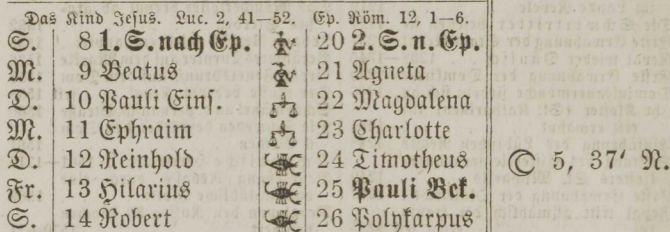 Das Kind Jesus. Luc. 2, 41—52. Ep. Röm. 12, 1—6.
S. 8 1. S. nach Ep. 20 2. S. n. Ep.
M. 9 Beatus 21 Agneta
D. 10 Pauli Eins. 22 Magdalena
M. 11 Ephraim 23 Charlotte
D. 12 Reinhold 24 Timotheus ☾ 5, 37' N.
Fr. 13 Hilarius 25 Pauli Bek.
S. 14 Robert 26 Polykarpus